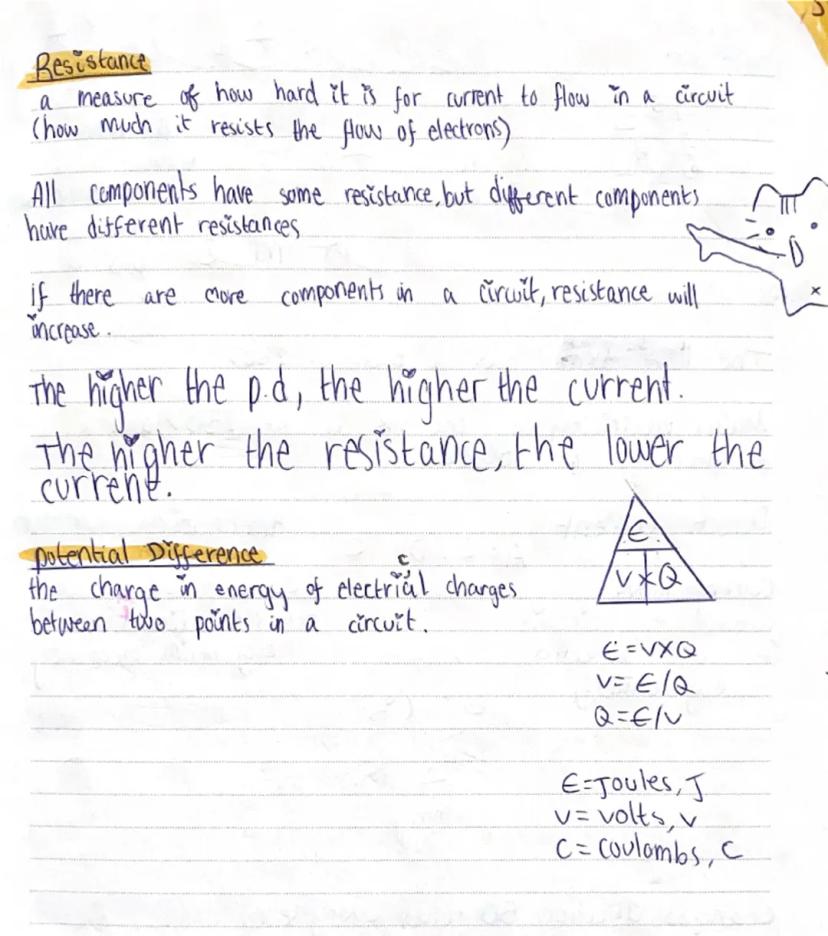 Resistance
a measure of how hard it is for current to flow in a circuit
(how much it resists the flow of electrons)
All components have some resistance, but different components
have different resistances
if there are more components in a circuit, resistance will
increase.
The higher the p.d, the higher the current.
The higher the resistance, the lower the
current.
potential Difference
the charge in energy of electrical charges
between two points in a circuit.
E
V x Q
E = V x Q
V = E / Q
Q = E / V
E = Joules, J
V = volts, v
C = coulombs, C